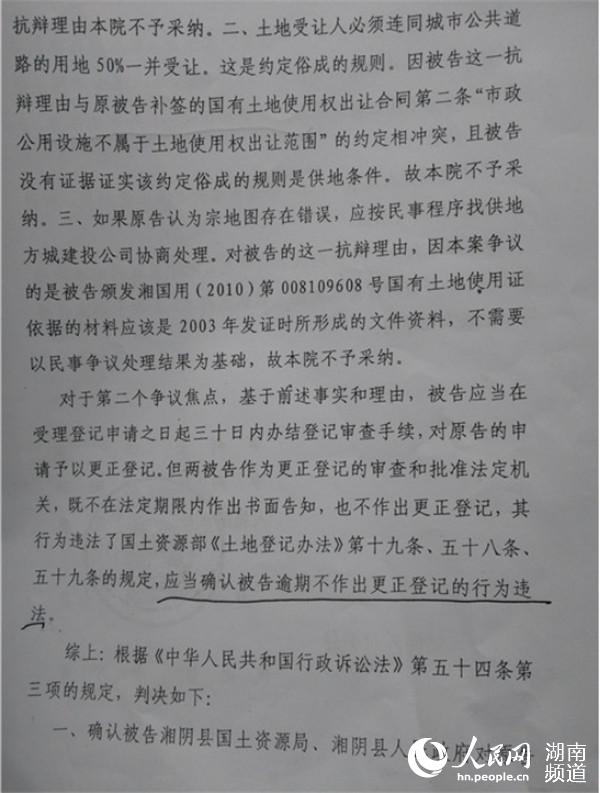 抗辩理由本院不予采纳。二、土地受让人必须连同城市公共道
路的用地50%一并受让。这是约定俗成的规则。因被告这一抗
辩理由与原被告补签的国有土地使用权出让合同第二条“市政
公用设施不属于土地使用权出让范围”的约定相冲突，且被告
没有证据证实该约定俗成的规则是供地条件。故本院不予采
纳。三、如果原告认为宗地图存在错误，应按民事程序找供地
方城建投公司协商处理。对被告的这一抗辩理由，因本案争议
的是被告颁发湘国用(2010)第008109608号国有土地使用证
依据的材料应该是2003年发证时所形成的文件资料，不需要
以民事争议处理结果为基础，故本院不予采纳。
对于第二个争议焦点，基于前述事实和理由，被告应当在
受理登记申请之日起三十日内办结登记审查手续，对原告的申
请予以更正登记。但两被告作为更正登记的审查和批准法定机
关，既不在法定期限内作出书面告知，也不作出更正登记，其
行为违法了国土资源部《土地登记办法》第十九条、五十八条、
五十九条的规定，应当确认被告逾期不作出更正登记的行为违
法。
综上：根据《中华人民共和国行政诉讼法》第五十四条第
三项的规定，判决如下：
一、确认被告湘阴县国土资源局、湘阴县人民政府对原告
人民网 湖南频道
hn.people.cn